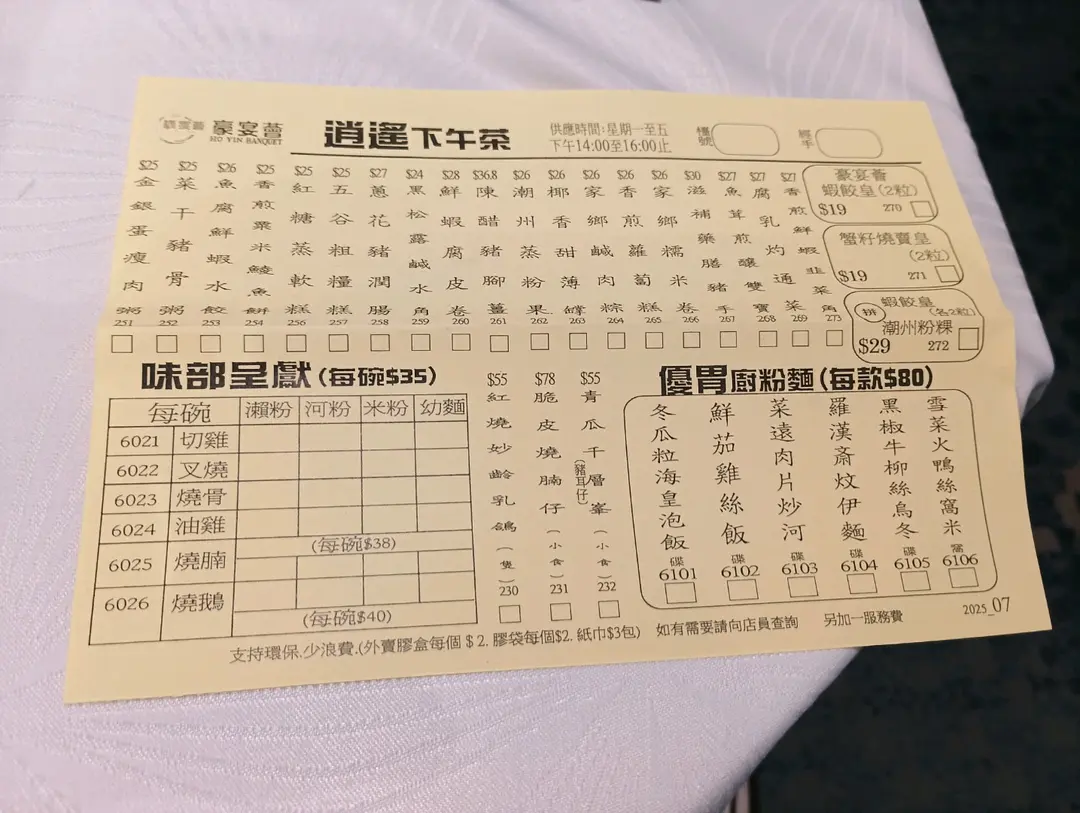 豪宴薈
HO YIN BANQUET
逍遙下午茶
供應時間:星期一至五
下午14:00至16:00止
檯號
經手
$25 金銀蛋瘦肉粥 251
$25 菜干豬骨粥 252
$26 魚腐鮮蝦水餃 253
$25 香煎粟米鯪魚餅 254
$25 紅糖蒸軟糕 256
$25 五谷粗糧糕 257
$27 蔥花豬潤腸 258
$24 黑松露鹹水角 259
$28 鮮蝦腐皮卷 260
$36.8 陳醋豬腳薑 261
$26 潮州蒸粉果 262
$26 椰香甜薄罉 263
$26 家鄉鹹肉粽 264
$26 香煎蘿蔔糕 265
$26 家鄉糯米卷 266
$30 滋補藥膳豬手 267
$27 魚茸煎釀雙寶 268
$27 腐乳灼通菜 269
$27 香煎鮮蝦韮菜角 273
豪宴薈
蝦餃皇(2粒)
$19 270
蟹籽燒賣皇
(2粒)
$19 271
蝦餃皇
拼 (各2粒)
潮州粉粿
$29 272
味部呈獻(每碗$35)
每碗 瀨粉 河粉 米粉 幼麵
6021 切雞
6022 叉燒
6023 燒骨
6024 油雞
(每碗$38)
6025 燒腩
6026 燒鵝
(每碗$40)
$55 紅燒妙齡乳鴿(隻) 230
$78 脆皮燒腩仔(小食) 231
$55 青瓜千層峯(小食) 232
(豬耳仔)
優胃廚粉麵(每款$80)
冬瓜粒海皇泡飯 碟 6101
鮮茄雞絲飯 碟 6102
菜遠肉片炒河 碟 6103
羅漢斎炆伊麵 碟 6104
黑椒牛柳絲烏冬 碟 6105
雪菜火鴨絲窩米 窩 6106
支持環保.少浪費.(外賣膠盒每個$2. 膠袋每個$2. 紙巾$3包) 如有需要請向店員查詢 另加一服務費 2025_07